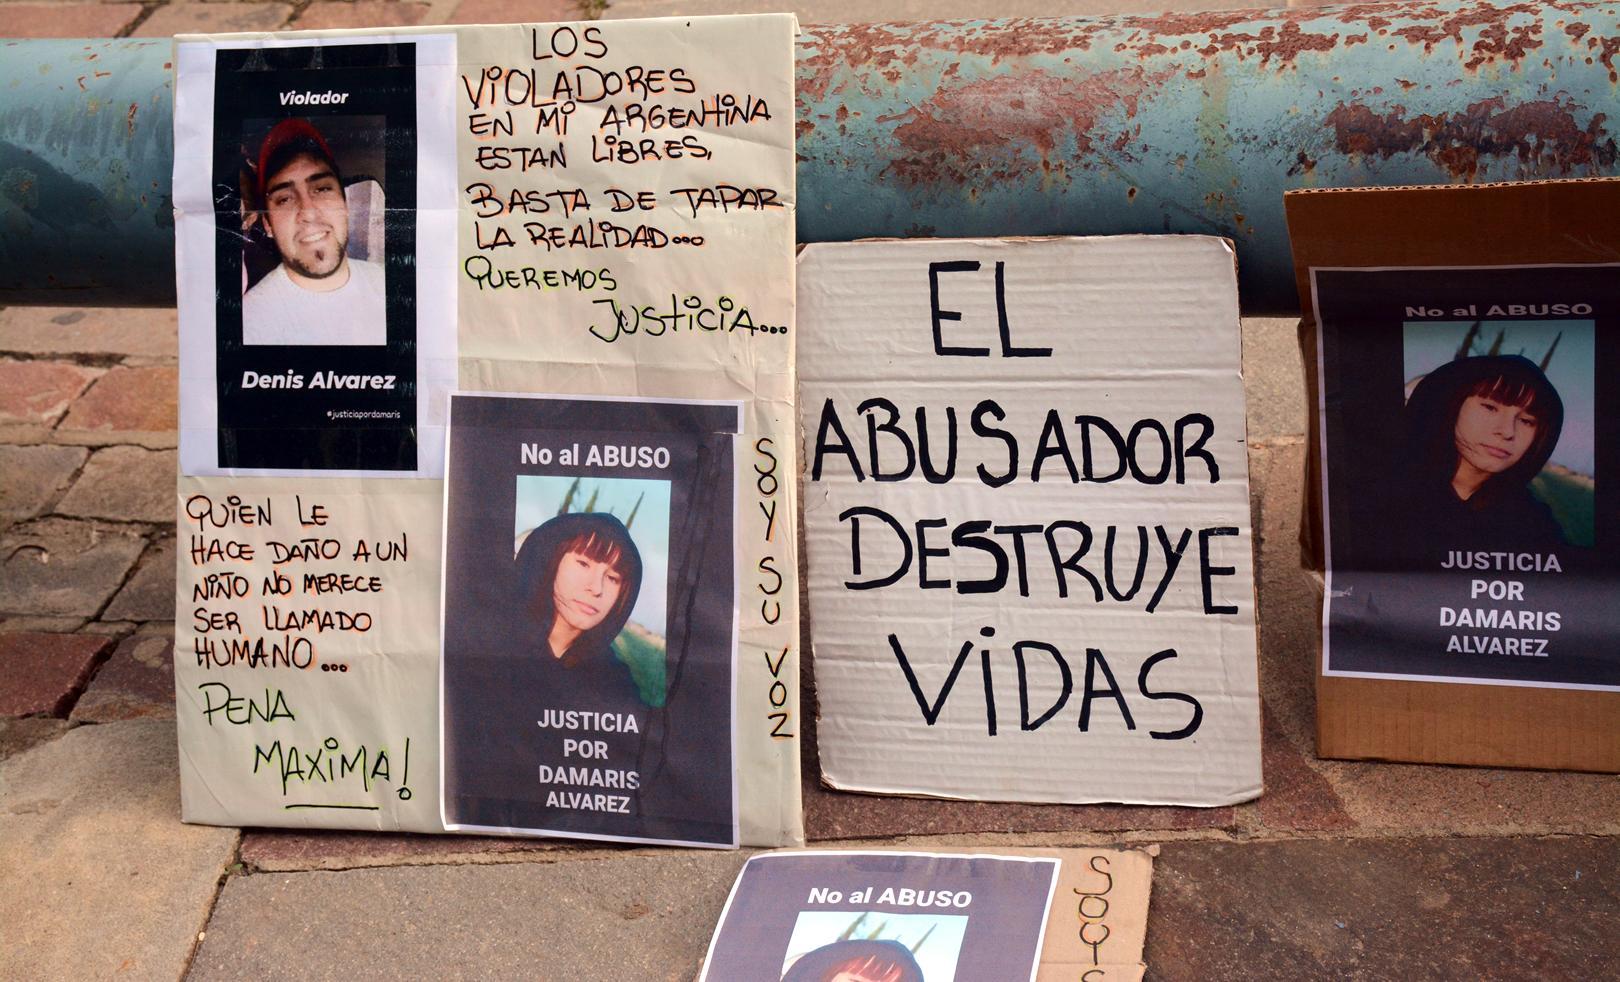 Violador
Denis Alvarez
#justiciapordamaris
LOS
VIOLADORES
EN MI ARGENTINA
ESTAN LIBRES,
BASTA DE TAPAR
LA REALIDAD...
QUEREMOS
JUSTICIA...
QUIEN LE
HACE DAÑO A UN
NIÑO NO MERECE
SER LLAMADO
HUMANO...
PENA
MAXIMA!
No al ABUSO
JUSTICIA
POR
DAMARIS
ALVAREZ
SOY SU VOZ
EL
ABUSADOR
DESTRUYE
VIDAS
No al ABUSO
JUSTICIA
POR
DAMARIS
ALVAREZ
No al ABUSO
SOY S